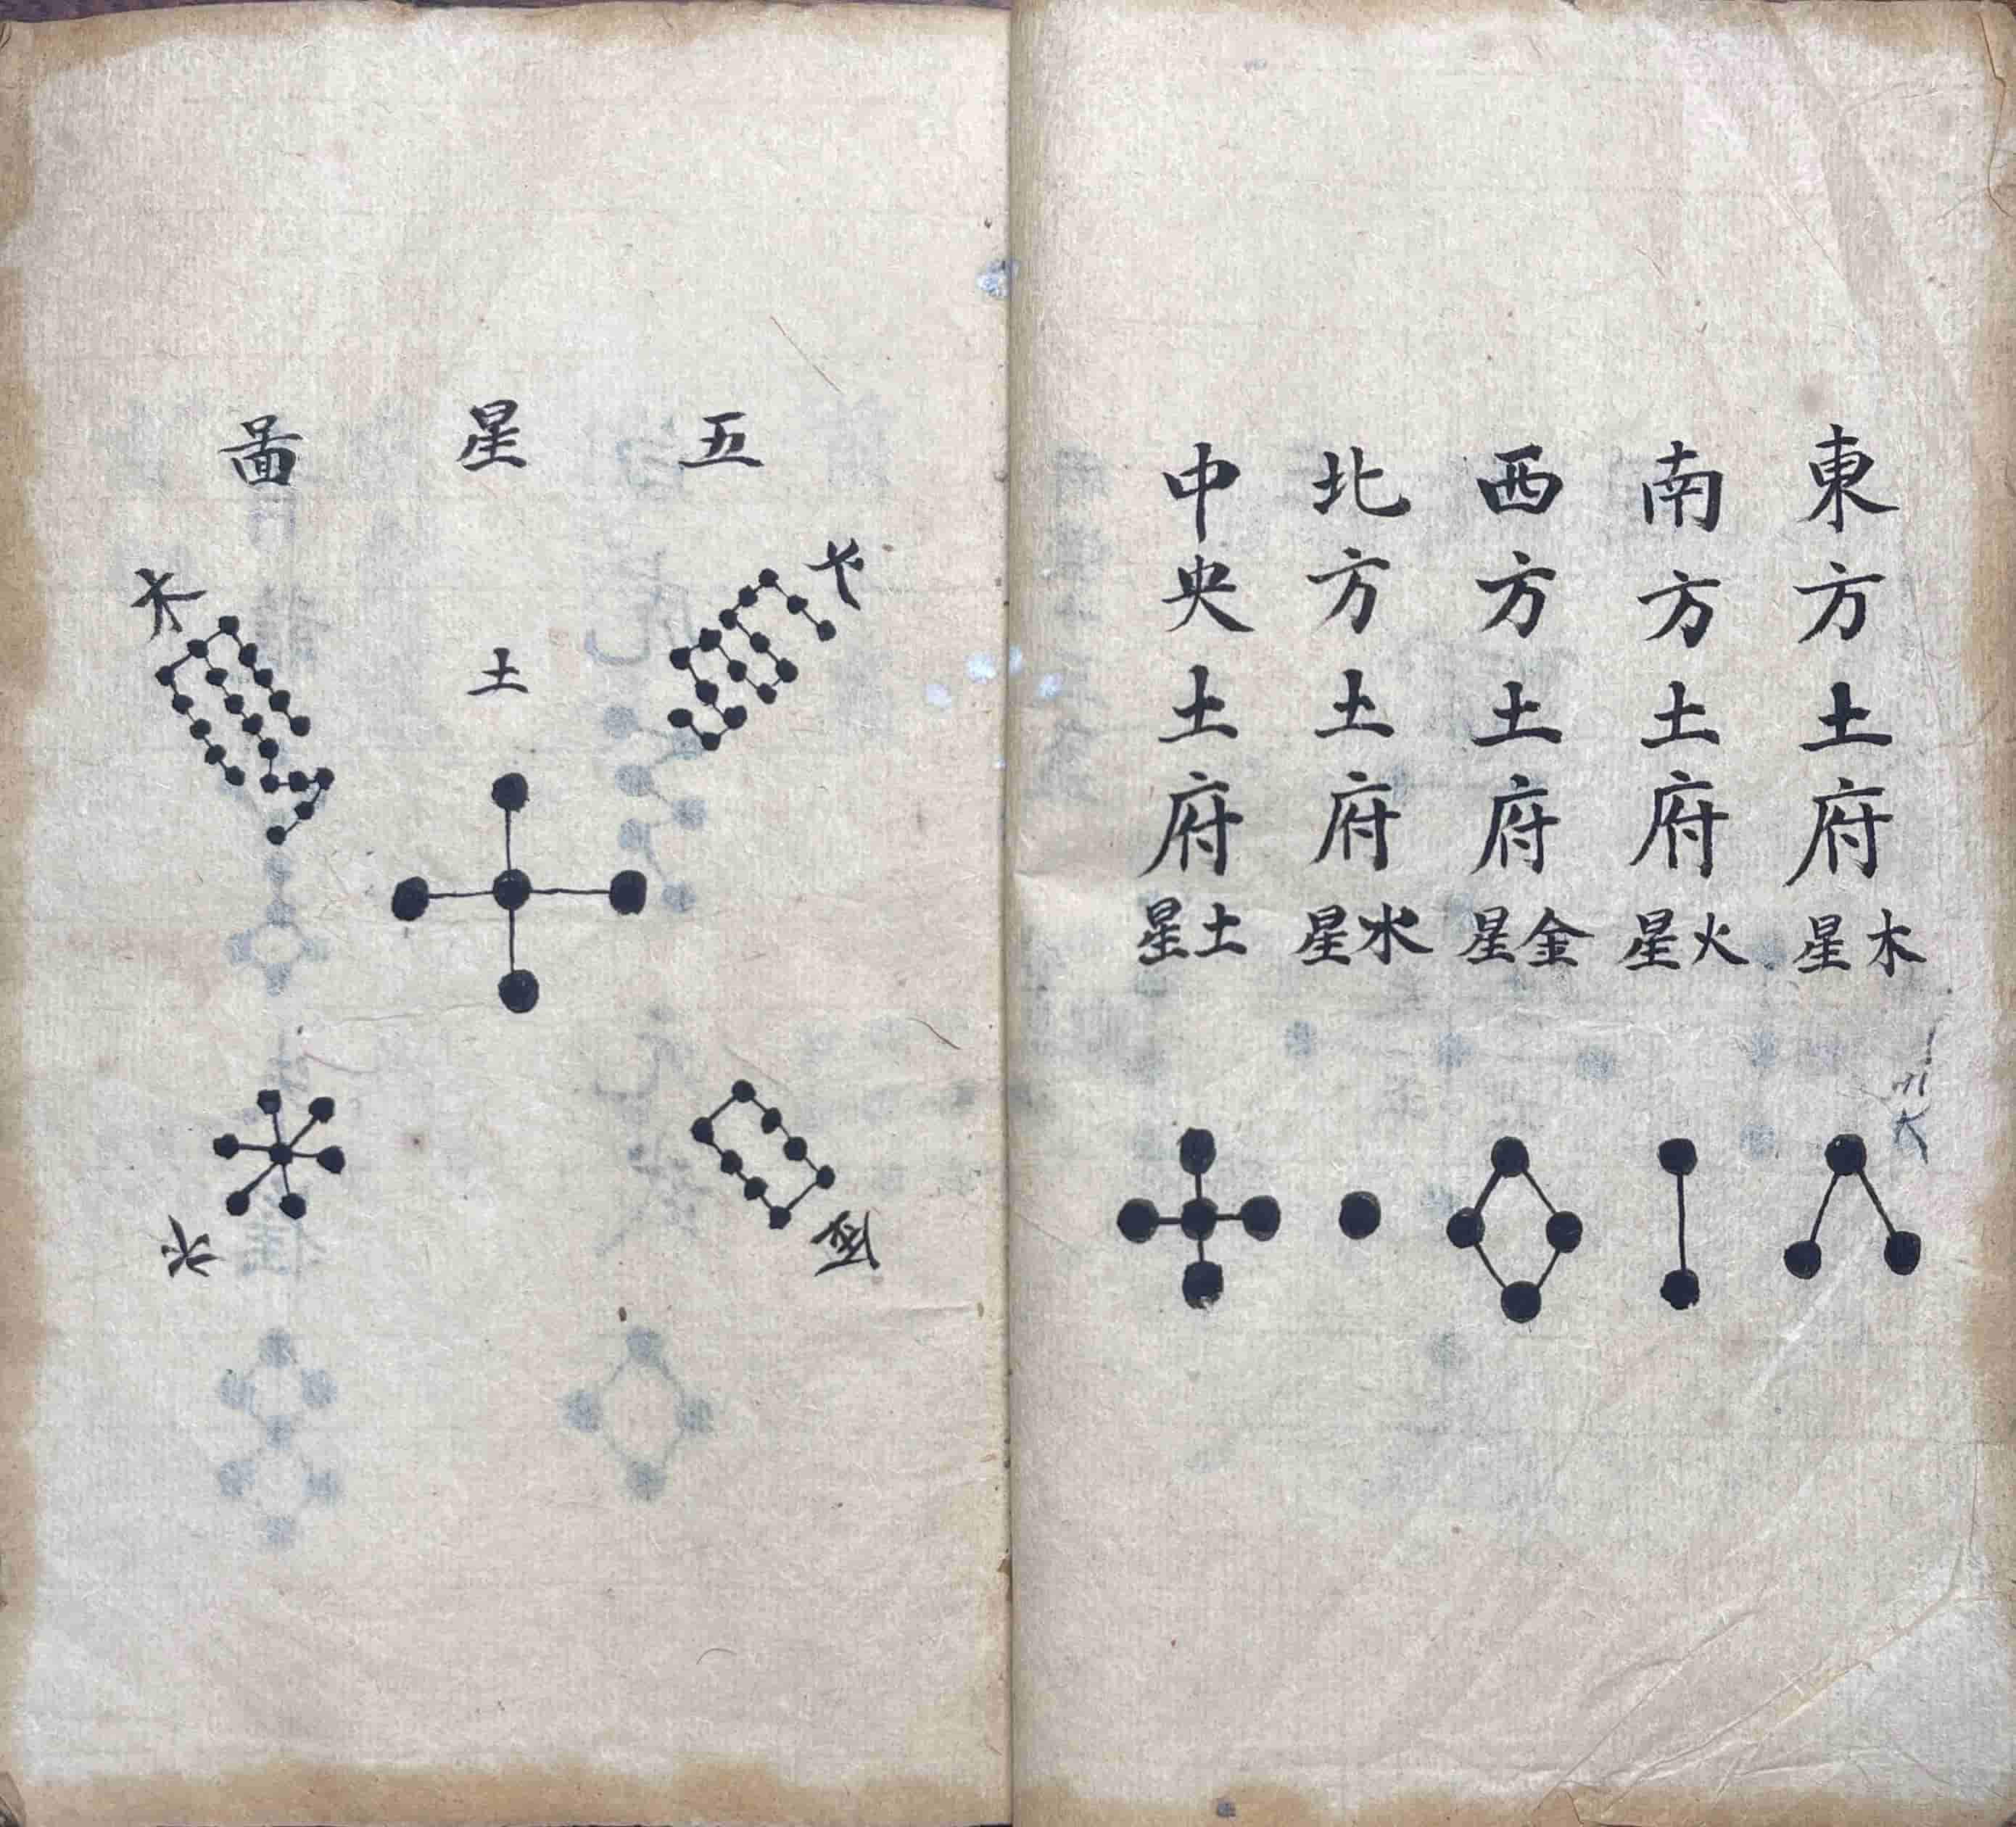 東方土府木星
南方土府火星
西方土府金星
北方土府水星
中央土府土星
五星啚
火
土
木
金
水